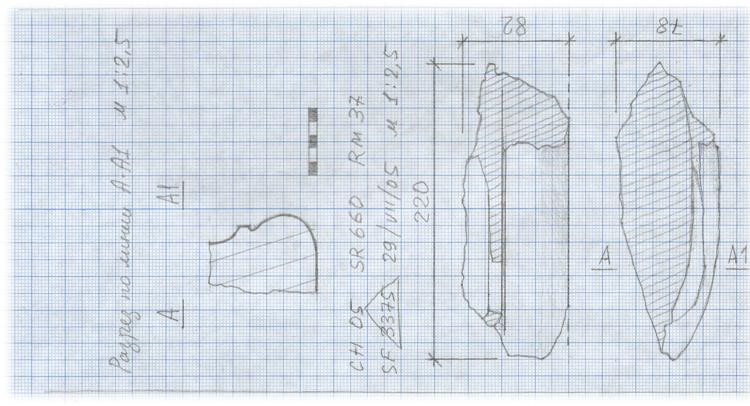 Разрез по линии А-А1 М 1:2,5
А А1
CH 05 SR 660 RM 37
SF 3375 29/VII/05 М 1:2,5
220
82
78
А А1